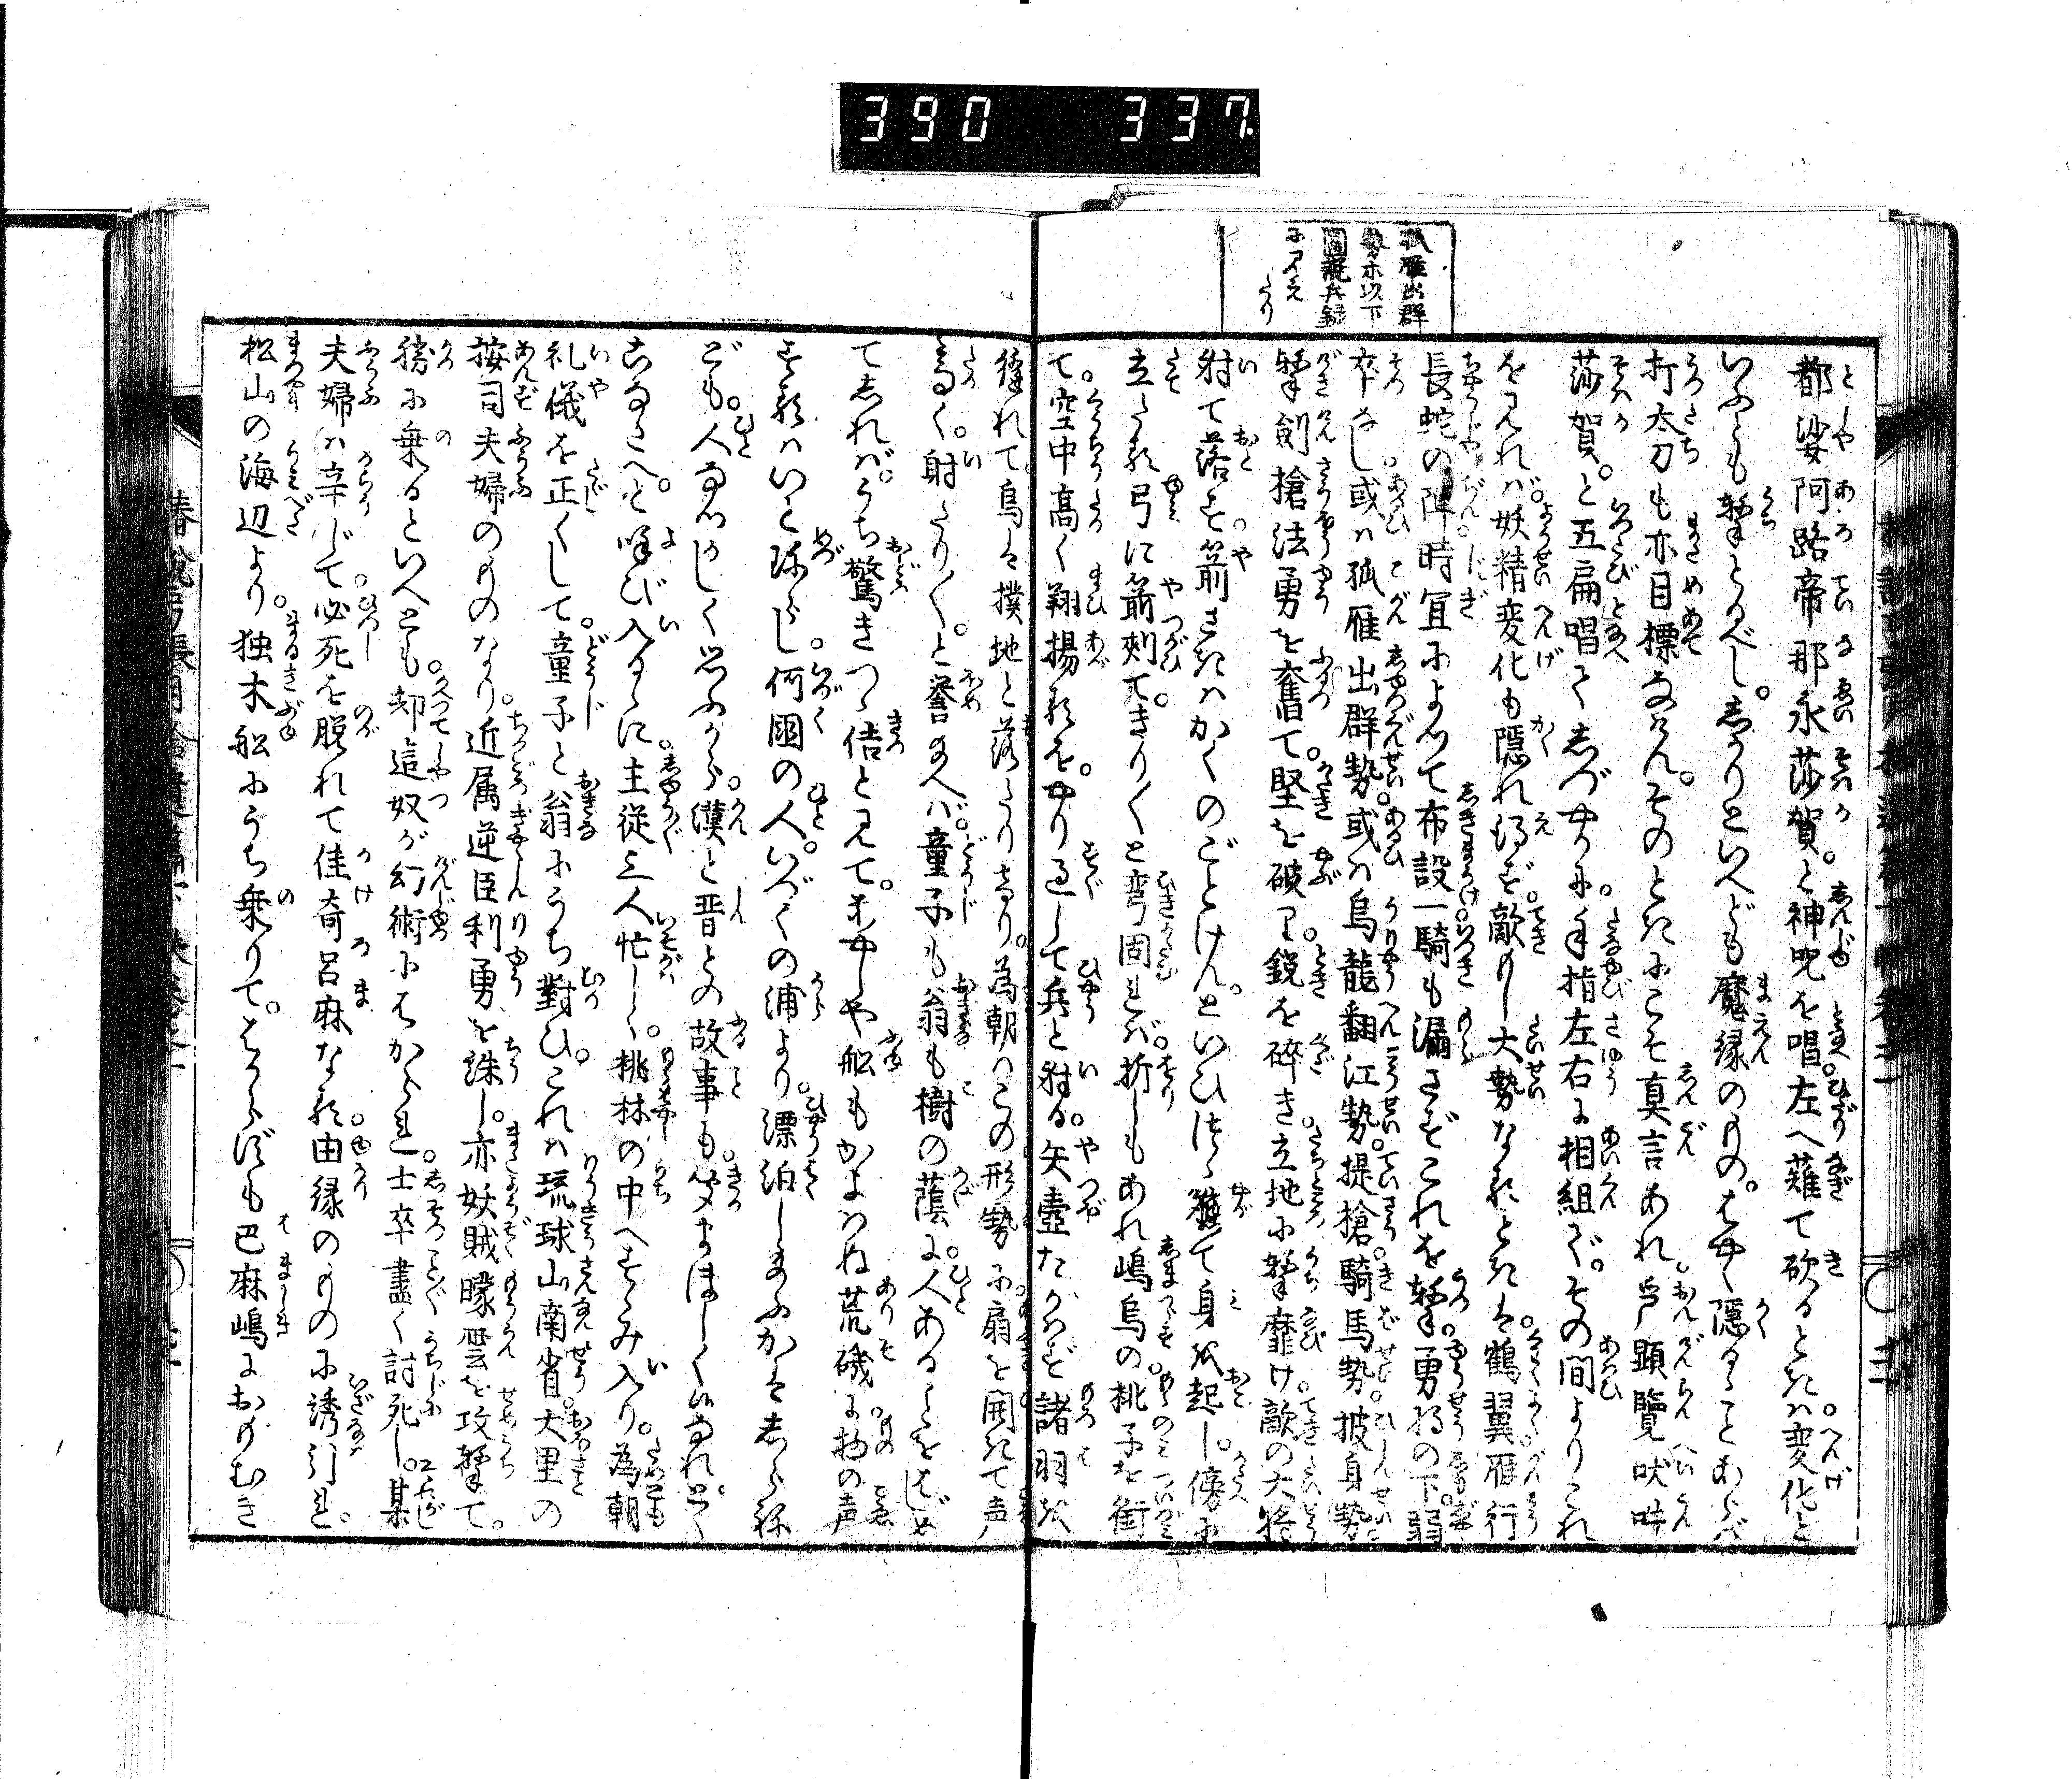 390 337
孤雁出群
勢等以下
圖説兵録
に見え
たり
都娑阿路帝那永莎賀。と神呪を唱。左へ薙て砍るときは変化と
いふとも撃とるべし。しかりといへども魔縁のもの。はやく隠るゝことあらば
打太刀も亦目標なけん。そのときにこそ真言あれ。
莎賀。と五扁唱て。しづやかに。手指左右に相組ぐ。その間よりこれ
を見れば。妖精変化も隠れ得ず。敵もし大勢なるときは。鶴翼雁行
長蛇の陣時宜によつて布設一騎も漏さずこれを撃。勇将の下弱
卒なし或は孤雁出群勢。或は烏龍翻江勢。提槍騎馬勢。披身勢
撃剣槍法勇を奮て。堅を破り鋭を碎き。立地に撃靡け。敵の大将
射て落す。箭さきはかくのごとけん。といひつゝ軈て身を起し。傍に
立たる弓に箭刺て。きり〳〵と弯固れば。折しもあれ嶋鳥の。桃子を銜
て。空中高く翔揚るを。やり過して兵と射る。矢壺たがはず諸羽を
縫れて。鳥は撲地と落たりける。為朝はこの形勢に扇を開きて声
高く。射たり〳〵。と誉給へば。童子も翁も樹の蔭に。人あることをはじめ
てしれば。うち驚きつゝ佶と見て。あやしや船もかよはぬ荒磯に。物の声
するはいと珍らし。何国の人。いづくの浦より。漂泊し給ふかはしらね
ども。人なつかしく思ふから。漢と晋との故事も。聞まほしく侍るなれ。とく
こなたへ。と呼び入るゝに。主従三人忙しく。桃林の中へすゝみ入り。為朝
礼儀を正くして。童子と翁にうち對ひ。これは琉球山南省。大里の
按司夫婦のものなり。近属逆臣利勇を誅し。亦妖賊曚雲を攻撃て。
勝に乗るといへども。却這奴が幻術にはかられ。士卒盡く討死し。某
夫婦は辛じて。必死を脱れて佳奇呂麻なる。由縁のものに誘引れ。
松山の海辺より。独木船にうち乗りて。はからずも巴麻嶋におもむき